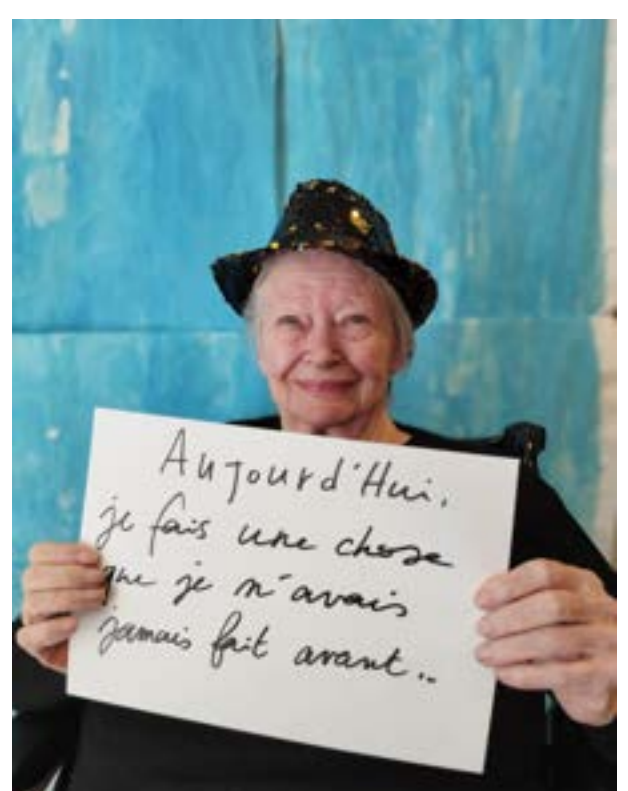 Aujourd'Hui.
je fais une chose
que je n'avais
jamais fait avant..